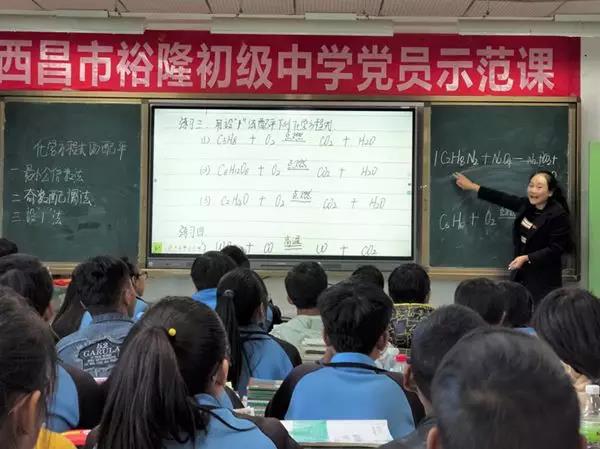 西昌市裕隆初级中学党员示范课
化学方程式的配平
一 最小公倍数法
二 奇数配偶法
三 设"1"法
练习三：用设"1"法配平下列化学方程式
(1) C5H8 + O2 点燃 CO2 + H2O
(2) C6H12O6 + O2 点燃 CO2 + H2O
(3) C2H6O + O2 点燃 CO2 + H2O
练习四
+ CO 高温 + CO2
1C2H8N2 + N2O4
+ O2 点燃
52
GARULA